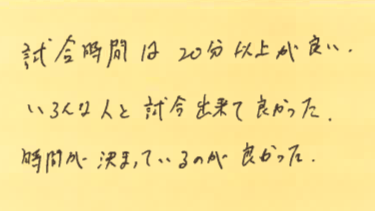 試合時間は20分以上が良い.
いろんな人と試合出来て良かった.
時間が決まっているのが良かった.